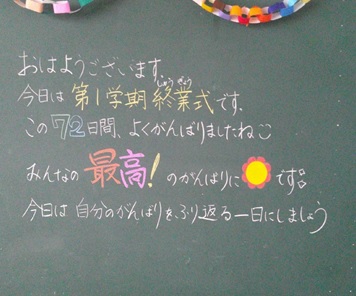 おはようございます。
今日は第1学期終業式です。
しゅうぎょう
この72日間、よくがんばりましたね
みんなの最高!のがんばりにです。
今日は自分のがんばりをふり返る一日にしましょう